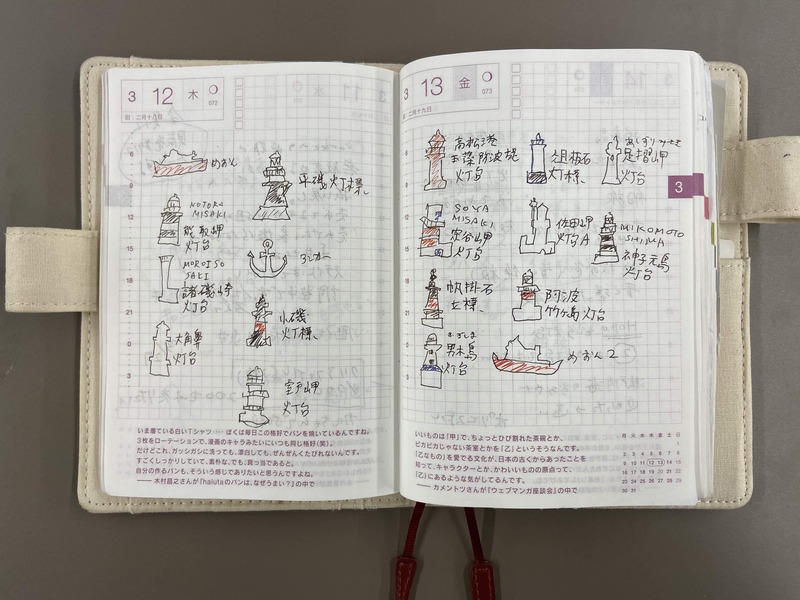 3 12 木
072
旧:二月十八日
めおん
平磯灯標
NOTORO
MISAKI
能取岬
灯台
アンカー
MOROISO
SAKI
諸磯崎
灯台
小磯
灯標
大角鼻
灯台
室戸岬
灯台
いま着ている白いTシャツ……ぼくは毎日この格好でパンを焼いているんですね。
3枚をローテーションで、漫画のキャラみたいにいつも同じ格好(笑)。
だけどこれ、ガッシガシに洗っても、漂白しても、ぜんぜんくたびれないんです。
すごくしっかりしていて、素朴な、でも、真っ当であると。
自分の作るパンも、そういう感じでありたいと思うんですよね。
――木村昌之さんが『halutaのパンは、なぜうまい?』の中で
3 13 金
073
旧:二月十九日
高松港
玉藻防波堤
灯台
俎板石
灯標
あしずりみさき
足摺岬
灯台
SOYA
MISAKI
宗谷岬
灯台
佐田岬
灯台
MIKOMOTO
SHIMA
神子元島
灯台
帆掛石
灯標
阿波
竹ヶ島灯台
おぎしま
男木島
灯台
めおん2
3
いいものは「甲」で、ちょっとひび割れた茶碗とか、
ピカピカじゃない茶室とかを『乙』というそうなんです。
『乙なもの』を愛でる文化が、日本の古くからあったことを
知って、キャラクターとか、かわいいものの原点って、
『乙』にあるような気がしてるんです。
――カメントツさんが『ウェブマンガ座談会』の中で
月 火 水 木 金 土 日
1
2 3 4 5 6 7 8
9 10 11 12 13 14 15
16 17 18 19 20 21 22
23 24 25 26 27 28 29
30 31